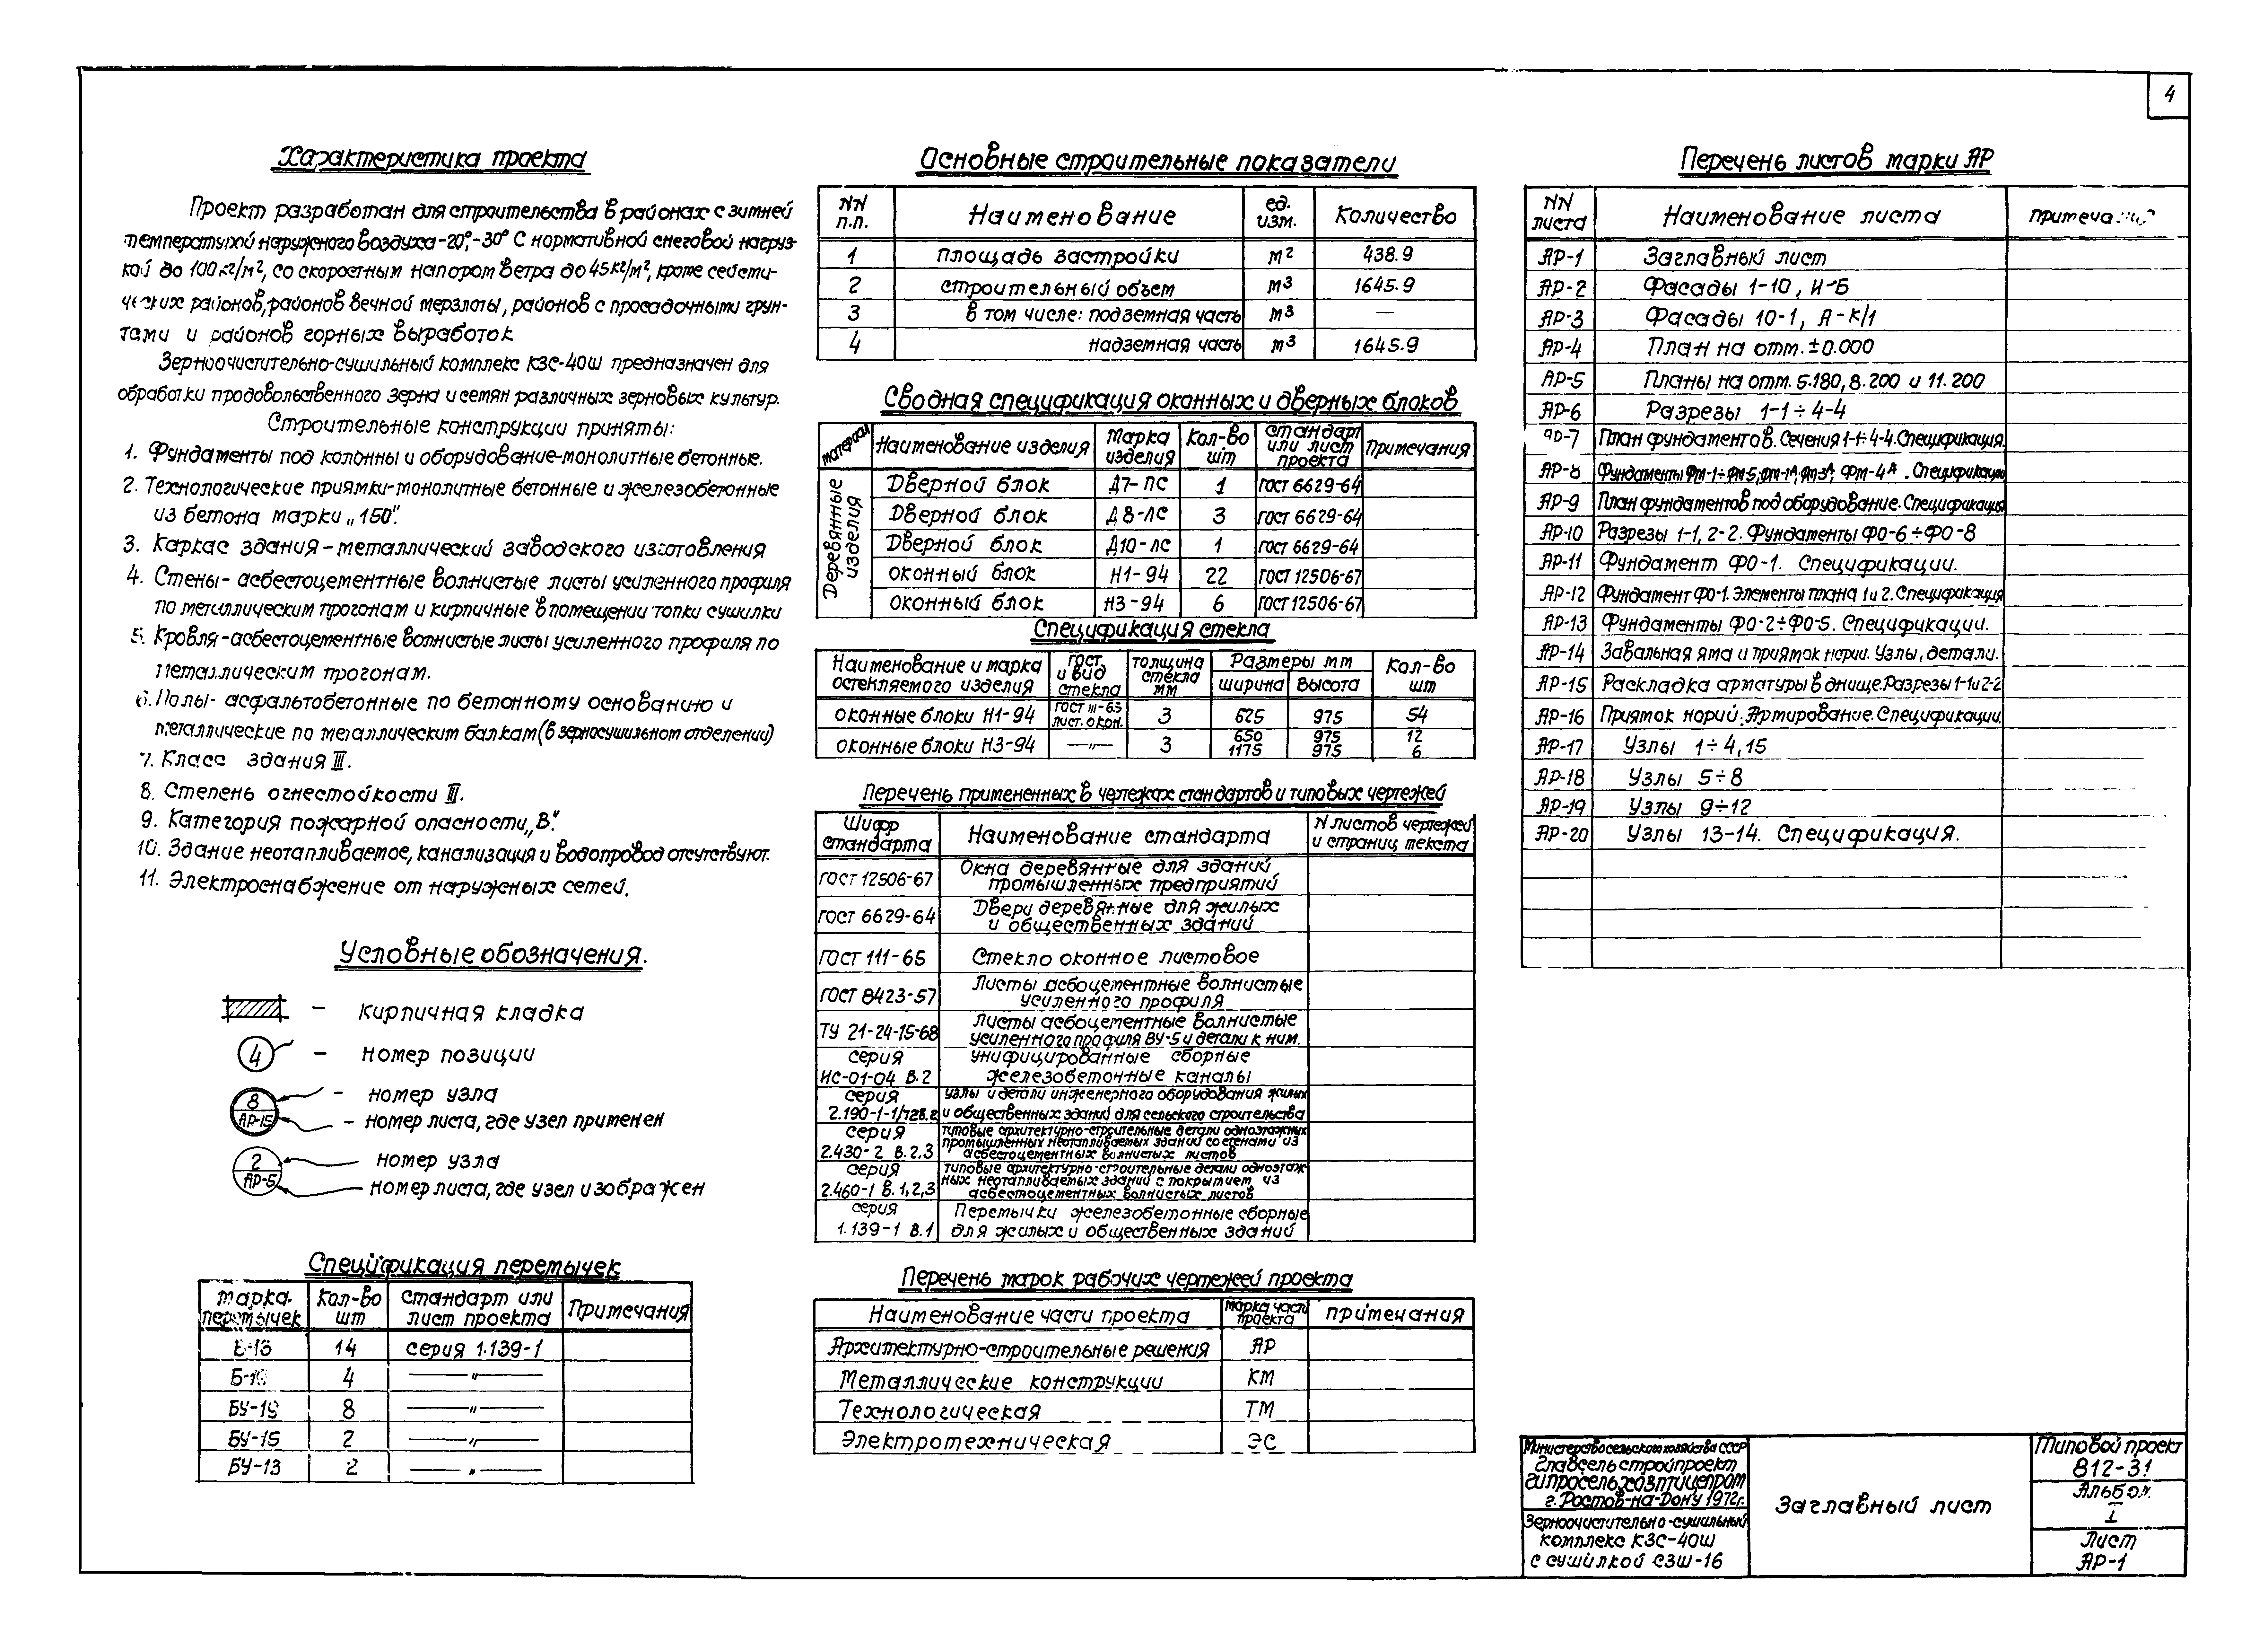 4
Характеристика проекта
Проект разработан для строительства в районах с зимней
температурой наружного воздуха -20°,-30° С нормативной снеговой нагруз-
кой до 100 кг/м², со скоростным напором ветра до 45 кг/м², кроме сейсми-
ческих районов, районов вечной мерзлоты, районов с просадочными грун-
тами и районов горных выработок
Зерноочистительно-сушильный комплекс КЗС-40Ш предназначен для
обработки продовольственного зерна и семян различных зерновых культур.
Строительные конструкции приняты:
1. Фундаменты под колонны и оборудование-монолитные бетонные.
2. Технологические приямки-монолитные бетонные и железобетонные
из бетона марки „150".
3. Каркас здания - металлический заводского изготовления
4. Стены - асбестоцементные волнистые листы усиленного профиля
по металлическим прогонам и кирпичные в помещении топки сушилки
5. Кровля - асбестоцементные волнистые листы усиленного профиля по
металлическим прогонам.
6. Полы - асфальтобетонные по бетонному основанию и
металлические по металлическим балкам (в зерносушильном отделении)
7. Класс здания III.
8. Степень огнестойкости III.
9. Категория пожарной опасности „В".
10. Здание неотапливаемое, канализация и водопровод отсутствуют.
11. Электроснабжение от наружных сетей.
Условные обозначения.
– Кирпичная кладка
4 – Номер позиции
8 – номер узла
АР-15 – номер листа, где узел применен
2 номер узла
АР-5 – номер листа, где узел изображен
Спецификация перемычек
Марка перемычек | Кол-во шт | Стандарт или лист проекта | Примечания
14 | серия 1.139-1
4 | — " —
БУ-19 | 8 | — " —
БУ-15 | 2 | — " —
БУ-13 | 2 | — " —
Основные строительные показатели
NN п.п. | Наименование | ед. изм. | Количество
1 | площадь застройки | м² | 438.9
2 | строительный объем | м³ | 1645.9
3 | в том числе: подземная часть | м³ | —
4 | надземная часть | м³ | 1645.9
Сводная спецификация оконных и дверных блоков
материал | Наименование изделия | Марка изделия | Кол-во шт | стандарт или лист проекта | Примечания
Деревянные изделия
Дверной блок | Д7-ПС | 1 | ГОСТ 6629-64
Дверной блок | Д8-ЛС | 3 | ГОСТ 6629-64
Дверной блок | Д10-ЛС | 1 | ГОСТ 6629-64
оконный блок | Н1-94 | 22 | ГОСТ 12506-67
оконный блок | Н3-94 | 6 | ГОСТ 12506-67
Спецификация стекла
Наименование и марка остекляемого изделия | ГОСТ и вид стекла | толщина стекла мм | Размеры мм | ширина | высота | Кол-во шт
оконные блоки Н1-94 | ГОСТ 111-65 лист. окон. | 3 | 625 | 975 | 54
оконные блоки Н3-94 | —"— | 3 | 650 | 975 | 12
1175 | 975 | 6
Перечень примененных в чертежах стандартов и типовых чертежей
Шифр стандарта | Наименование стандарта | N листов чертежей и страниц текста
ГОСТ 12506-67 | Окна деревянные для зданий
промышленных предприятий
ГОСТ 6629-64 | Двери деревянные для жилых
и общественных зданий
ГОСТ 111-65 | Стекло оконное листовое
ГОСТ 8423-57 | Листы асбоцементные волнистые
усиленного профиля
ТУ 21-24-15-68 | Листы асбоцементные волнистые
усиленного профиля ВУ-5 и детали к ним.
серия | унифицированные сборные
ИС-01-04 В.2 | железобетонные каналы
серия | узлы и детали инженерного оборудования жилых
2.190-1-1/72в.2 | и общественных зданий для сельского строительства
серия | типовые архитектурно-строительные детали одноэтажных
промышленных неотапливаемых зданий со стенами из
2.430-2 В.2,3 | асбестоцементных волнистых листов
серия | типовые архитектурно-строительные детали одноэтаж-
ных неотапливаемых зданий с покрытием из
2.460-1 В.1,2,3 | асбестоцементных волнистых листов
серия | Перемычки железобетонные сборные
1.139-1 В.1 | для жилых и общественных зданий
Перечень марок рабочих чертежей проекта
Наименование части проекта | марка части проекта | примечания
Архитектурно-строительные решения | АР
Металлические конструкции | КМ
Технологическая | ТМ
Электротехническая | ЭС
Перечень листов марки АР
NN листа | Наименование листа | примечания
АР-1 | Заглавный лист
АР-2 | Фасады 1-10, И-Б
АР-3 | Фасады 10-1, А-К/1
АР-4 | План на отм. ±0.000
АР-5 | Планы на отм. 5.180, 8.200 и 11.200
АР-6 | Разрезы 1-1÷4-4
АР-7 | План фундаментов. Сечения 1-1÷4-4. Спецификация.
АР-8 | Фундаменты Фм-1÷Фм-5; Фм-1А; Фм-3А; Фм-4А. Спецификации
АР-9 | План фундаментов под оборудование. Спецификация
АР-10 | Разрезы 1-1, 2-2. Фундаменты ФО-6÷ФО-8
АР-11 | Фундамент ФО-1. Спецификации.
АР-12 | Фундамент ФО-1. Элементы плана 1 и 2. Спецификация
АР-13 | Фундаменты ФО-2÷ФО-5. Спецификации.
АР-14 | Завальная яма и приямок нории. Узлы, детали.
АР-15 | Раскладка арматуры в днище. Разрезы 1-1 и 2-2
АР-16 | Приямок норий. Армирование. Спецификации.
АР-17 | Узлы 1÷4, 15
АР-18 | Узлы 5÷8
АР-19 | Узлы 9÷12
АР-20 | Узлы 13-14. Спецификация.
Министерство сельского хозяйства СССР
Главсельстройпроект
Гипросельхозптицепром
г. Ростов-на-Дону 1972г.
Зерноочистительно-сушильный
комплекс КЗС-40Ш
с сушилкой СЗШ-16
Заглавный лист
Типовой проект
812-31
Альбом
I
Лист
АР-1